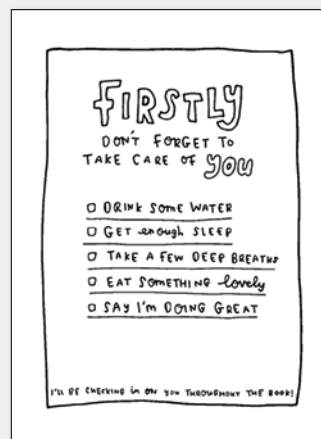 FIRSTLY
DON'T FORGET TO
TAKE CARE OF YOU
DRINK SOME WATER
GET enough SLEEP
TAKE A FEW DEEP BREATHS
EAT SOMETHING lovely
SAY I'M DOING GREAT
I'LL BE CHECKING in ON YOU THROUGHOUT THE BOOK!